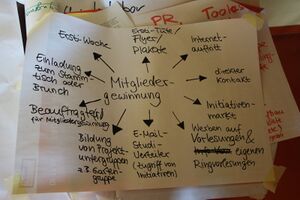 PR Tools
Ersti-Woche
Ersti-Tüte/
Flyer/
Plakate
Internet-
auftritt
Einladung
zum Stamm-
tisch oder
Brunch
Mitglieder-
gewinnung
direkter
Kontakt
Beauftragte/r
für Mitgliedergewinnung
Initiativen-
markt
Bildung
von Projekt-
untergruppen
z.B. Garten-
gruppe
E-Mail-
Studi-
Verteiler
(zugriff von
Initiativen)
Werben auf
Vorlesungen &
eigenen
Ringvorlesungen